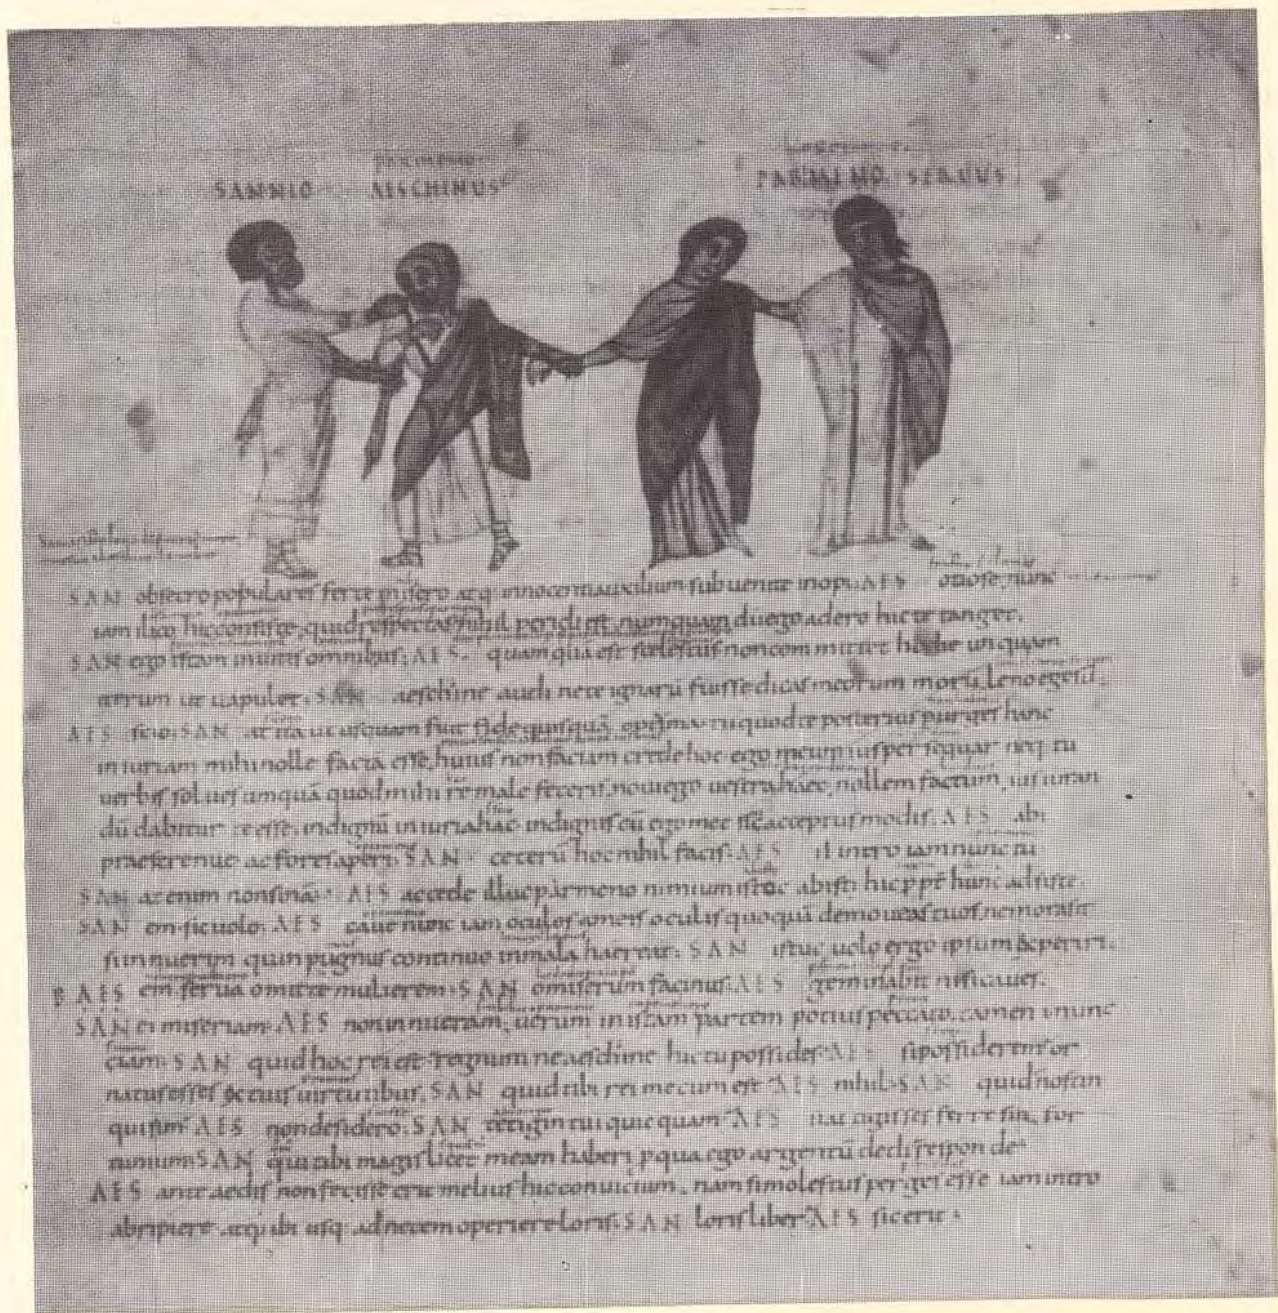 SANNIO AESCHINUS PARMENO SERVUS
SAN obsecro populares ferte misero atq innocenti auxilium subuenite inopi. AES otiose nunc
iam ilico hic consiste quid respectas nihil pericli est numquam dū ego adero hic te tanget.
SAN ego istam inuitis omnibus. AES quamquā est scelestus non committet hodie unquam
iterum ut uapulet. SAN aeschine audi ne te ignarū fuisse dicas meorum morū leno ego sū.
AES scio. SAN at ita ut usquam fuit fide quisquā optima tu quod te posterius purges hanc
iniuriam mihi nolle factā esse huius non faciam crede hoc ego meum ius persequar neq tu
uerbis solues umquā quod mihi re male feceris noui ego uestra haec nollem factum iusiuran
dū dabitur te esse indignū iniuria hac indignis cū egomet acceptus modis. AES abi
prae strenue ac fores aperi. SAN ceterū hoc nihil facis. AES i intro iam nunc tu
SAN at enim non sinā. AES accede illuc parmeno nimium istoc abisti hic ppe hunc adsiste.
SAN em sic uolo. AES caue nunc iam oculos a meis oculis quoquā demoueas tuos ne mora sit
si innuerim quin pugnus continuo in mala haereat. SAN istuc uolo ergo ipsum experiri.
AES em serua omitte mulierem. SAN o miserum facinus. AES geminabit nisi caues.
SAN ei miseriam. AES non innueram, uerum in istam partem potius peccato tamen i nunc
iam. SAN quid hoc rei est regnum ne aeschine hic tu possides. AES si possiderem or
natus esses ex tuis uirtutibus. SAN quid tibi rei mecum est AES nihil. SAN quid nostin
qui sim AES non desidero. SAN tetigin tui quicquam AES si attigisses ferres in for
tunium. SAN qui tibi magis licet meam habere p qua ego argentū dedi responde
AES ante aedis non fecisse erit melius hic conuicium. nam si molestus perges esse iam intro
abripiere atq ibi usq ad necem operiere loris. SAN loris liber AES sic erit.